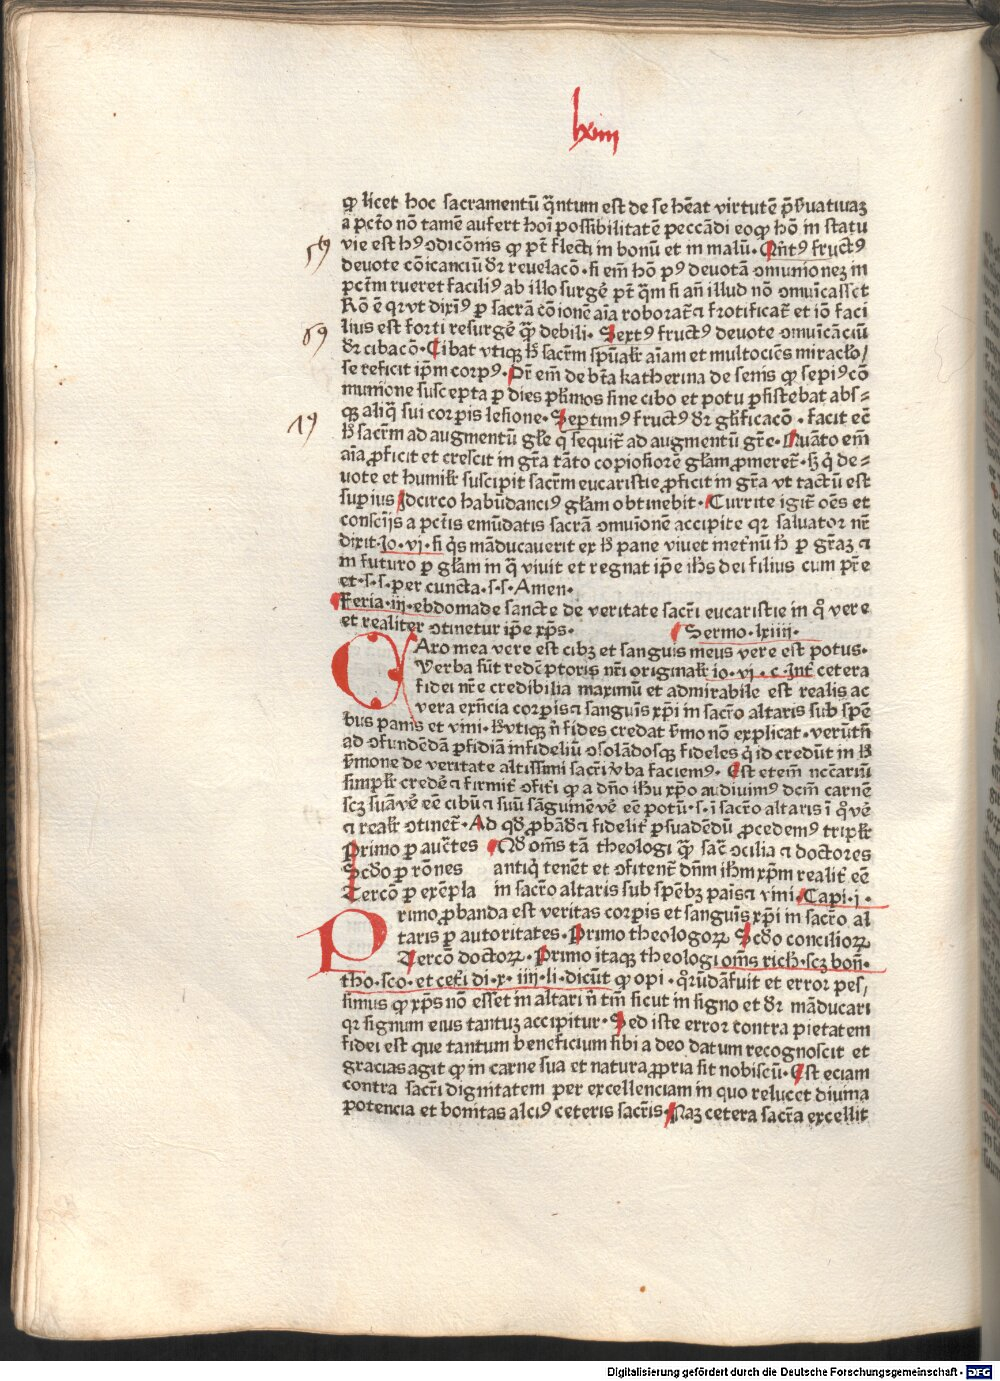 lxiiii
ꝙ licet hoc sacramentū q̄ntum est de se hēat virtutē p̄ẜuatiuaꝫ
a pctō nō tamē aufert hoī possibilitatē peccādi eoꝙ hō in statu
5ꝰ
vie est hꝰ ꝯdicōnis ꝙ pt̄ flecti in bonū et in malū. Qn̄tꝰ fructꝰ
deuote cōicanciū dr̄ reuelacō. si em̄ hō pꝰ deuotā ꝯmunionez in
pctm̄ rueret faciliꝰ ab illo surgē pt̄ q̄m si an̄ illud nō ꝯmuīcasset
Rō ē qr vt dixīꝰ ꝑ sacrā cōionē aīa roborat̄ ⁊ frotificat̄ et iō faci
6ꝰ
lius est forti resurgē qꝫ̄ debili. Sextꝰ fructꝰ deuote ꝯmuīcāciū
dr̄ cibacō. Cibat vtiqꝫ h̄ sacrm̄ sp̄ualr̄ aīam et multociēs miraclo/
se reficit ip̄m corpꝰ. Pr̄ em̄ de bt̄a katherina de senis ꝙ sepiꝰ cō
munione suscepta ꝑ dies pl̄imos sine cibo et potu ꝑsistebat abs=
7ꝰ
qꝫ aliq̄ sui corpis lesione. Septimꝰ fructꝰ dr̄ gl̄ificacō. facit ec̄
h̄ sacrm̄ ad augmentū gl̄e q̄ sequit̄ ad augmentū gr̄e. Quāto em̄
aīa ꝓficit et crescit in gr̄a tāto copiosiorē gl̄am ꝓmeret̄. sꝫ q̇ de=
uote et humilr̄ suscipit sacrm̄ eucaristie ꝓficit in gr̄a vt tactū est
supius Idcirco habūdanciꝰ gl̄am obtinebit. Currite igit̄ oēs et
consciis a pctīs emūdatis sacrā ꝯmuīonē accipite qr saluator nr̄
dixit. Io. vi. si q̇s māducauerit ex h̄ pane viuet met̄nū h̄ ꝑ gr̄aꝫ ⁊
in futuro ꝑ gl̄am in q̄ viuit et regnat ip̄e ih̄s dei filius cum pr̄e
et. s. s. per cuncta. s. s. Amen.
Feria. iij. ebdomade sancte de veritate sacr̄i eucaristie in q̊ vere
et realiter ꝯtinetur ip̄e xp̄s. Sermo. lxiiii.
CAro mea vere est cibꝫ et sanguis meus vere est potus.
Verba sūt redēptoris nr̄i originalr̄ io. vi. c. Int̄ cetera
fidei nr̄e credibilia maximū et admirabile est realis ac
vera exn̄cia corpis ⁊ sanguīs xp̄i in sacr̄o altaris sub sp̄e
bus panis et vini. h̄ vtiqꝫ n̄ fides credat ẜmo nō explicat. verūtn̄
ad ꝯfundēdā ꝑfidiā infideliū ꝯsolādosqꝫ fideles q̇ id credūt in h̄
ẜmone de veritate altissimi sacr̄i v̄ba faciemꝰ. Est etem̄ nccāriū
simplr̄ credē ⁊ firmit̄ ꝯfit̄i ꝙ a dn̄o ih̄u xp̄o audiuimꝰ dcm̄ carnē
scꝫ suā vē eē cibū ⁊ suū sāguinē vē eē potū. s. ī sacr̄o altaris ī q̊ vē
⁊ realr̄ ꝯtinet̄. Ad qd̄ ꝓbād̄ ⁊ fidelit̄ ꝑsuadēdū ꝓcedemꝰ triplr̄
Primo ꝑ auctes Nd̄ om̄s tā theologi qꝫ̄ sac̄ ꝯcilia ⁊ doctores
Scd̄o ꝑ rōnes antiq̇ tenēt et ꝯfitent̄ dn̄m ih̄m xp̄m realit̄ eē
Tercō ꝑ exēpla in sacr̄o altaris sub sp̄ebꝫ paīs ⁊ vini. Capi. i.
PRimo ꝓbanda est veritas corpis et sanguīs xp̄i in sacr̄o al
taris ꝑ autoritates. Primo theologoꝝ Scd̄o conciliorꝝ
Tercō doctorꝝ. Primo itaqꝫ theologi om̄s rich. scꝫ bon̄.
tho. sco. et cet̄i di. x. iiii. li. dicūt ꝙ opi. q̊rūdā fuit et error pes/
simus ꝙ xp̄s nō esset in altari n̄ tm̄ sicut in signo et dr̄ māducari
qr signum eius tantuꝫ accipitur. Sed iste error contra pietatem
fidei est que tantum beneficium sibi a deo datum recognoscit et
gracias agit ꝙ in carne sua et natura ꝓpria sit nobiscū. Est eciam
contra sacr̄i dignitatem per excellenciam in quo relucet diuina
potencia et bonitas alciꝰ ceteris sacr̄is. Naꝫ cetera sacr̄a excellit
Digitalisierung gefördert durch die Deutsche Forschungsgemeinschaft - DFG